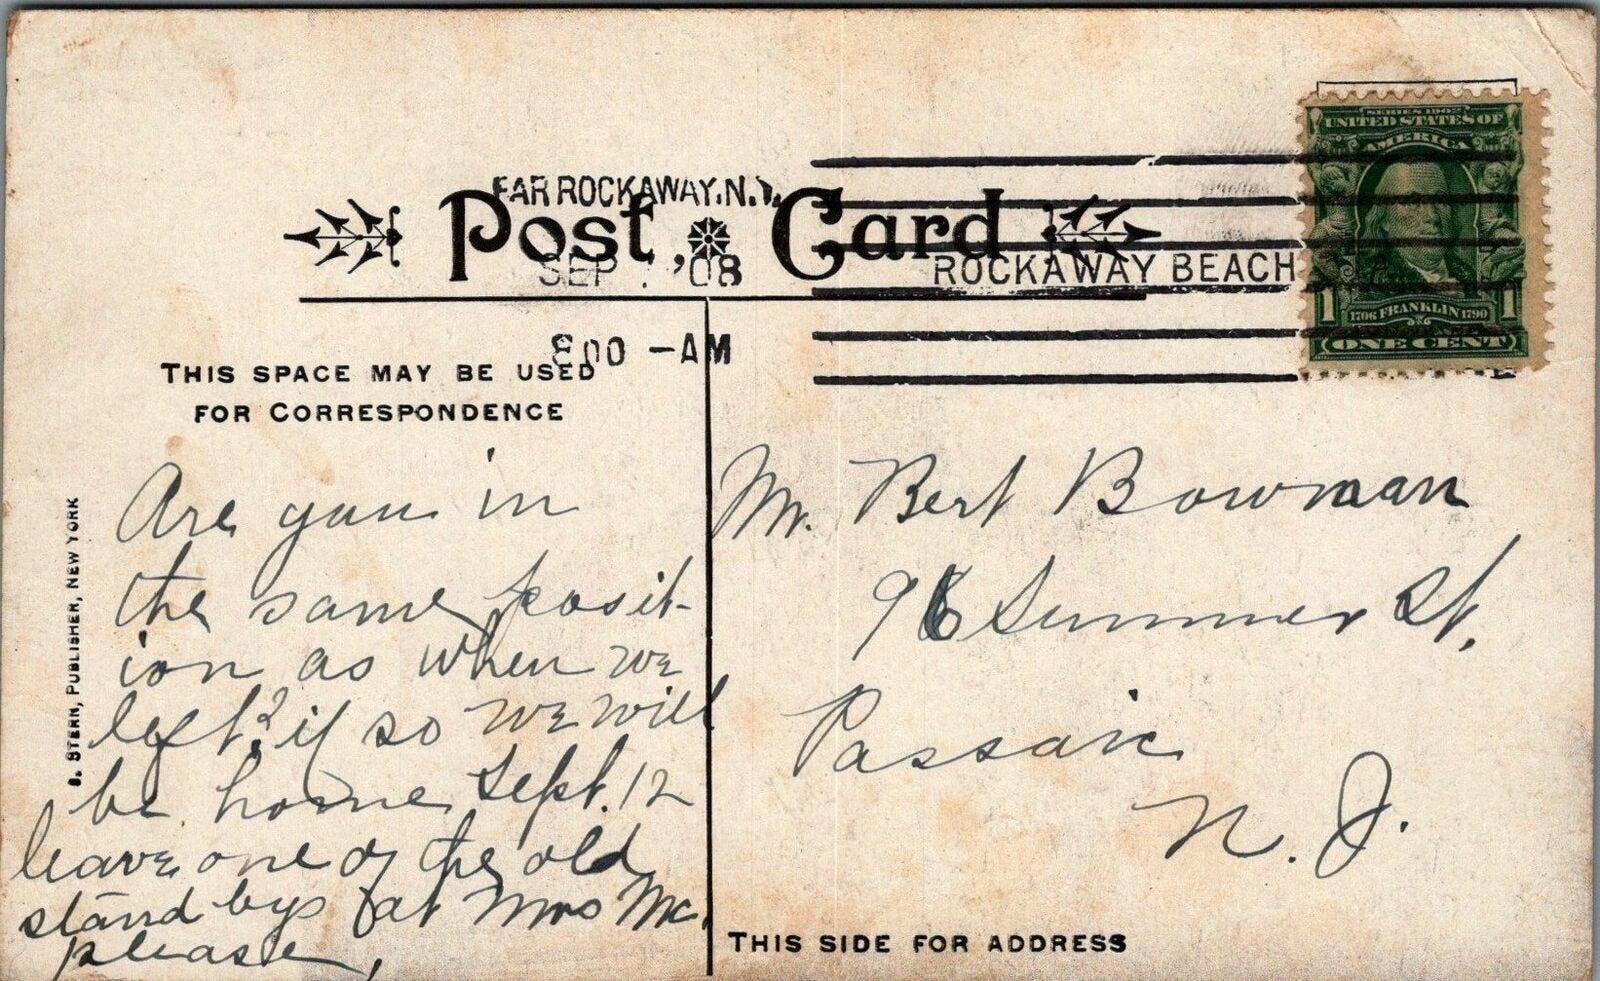 FAR ROCKAWAY, N.Y.
Post Card
SEP '08
ROCKAWAY BEACH
8 00 -AM
SERIES 1902
UNITED STATES OF
AMERICA
1 1706 FRANKLIN 1790 1
ONE CENT
THIS SPACE MAY BE USED
FOR CORRESPONDENCE
S. STERN, PUBLISHER, NEW YORK
Are you in
the same posit-
ion as when we
left? if so we will
be home Sept. 12
leave one of the old
stand bys at Mrs Mc.
please,
Mr. Bert Bowman
96 Summer St.
Passaic
N. J.
THIS SIDE FOR ADDRESS